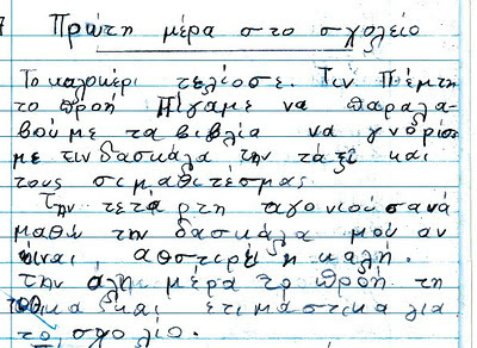 7 Πρώτη μέρα στο σχολείο
Το καλοκέρι τελίοσε. Τιν Πέμτη
το προή Πίγαμε να παραλα-
βούμε τα βιβλία να γνορίσι
με τιν δασκάλα την τάξι και
τους σιμαθιτέσμας
Την τετάρτη αγονιούσα νά
μαθώ την δασκάλα μου αν
είναι, αφστιρή η καλή.
την άλη μέρα το προή τη
και ετιμαστικα για
το σχολίο.